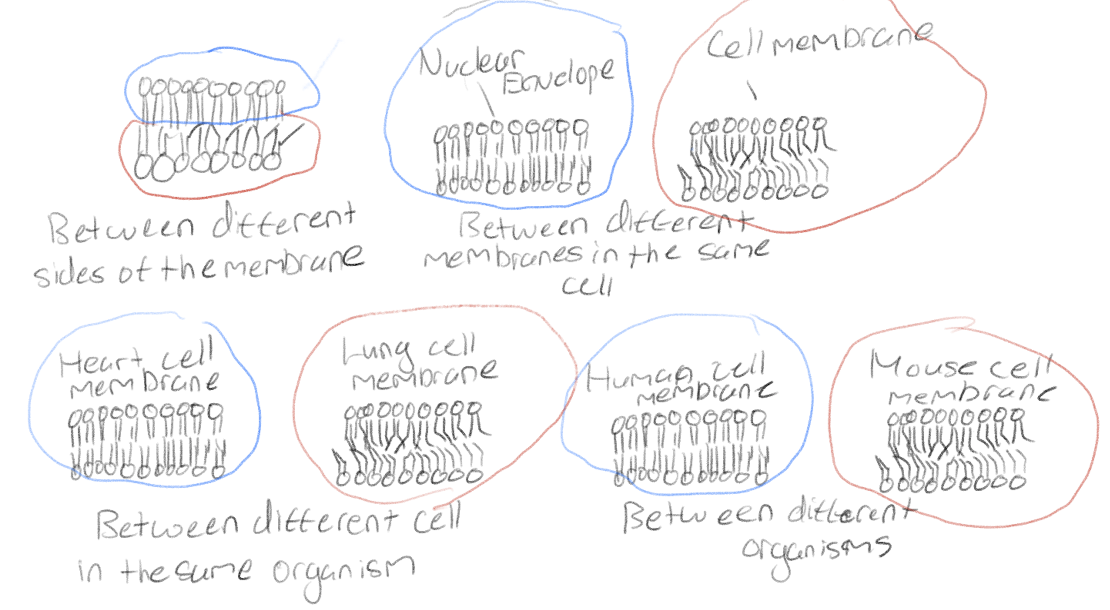 Nuclear
Envelope
Cell membrane
Between different
sides of the membrane
Between different
membranes in the same
cell
Heart cell
membrane
Lung cell
membrane
Human cell
membrane
Mouse cell
membrane
Between different cell
in the same organism
Between different
organisms